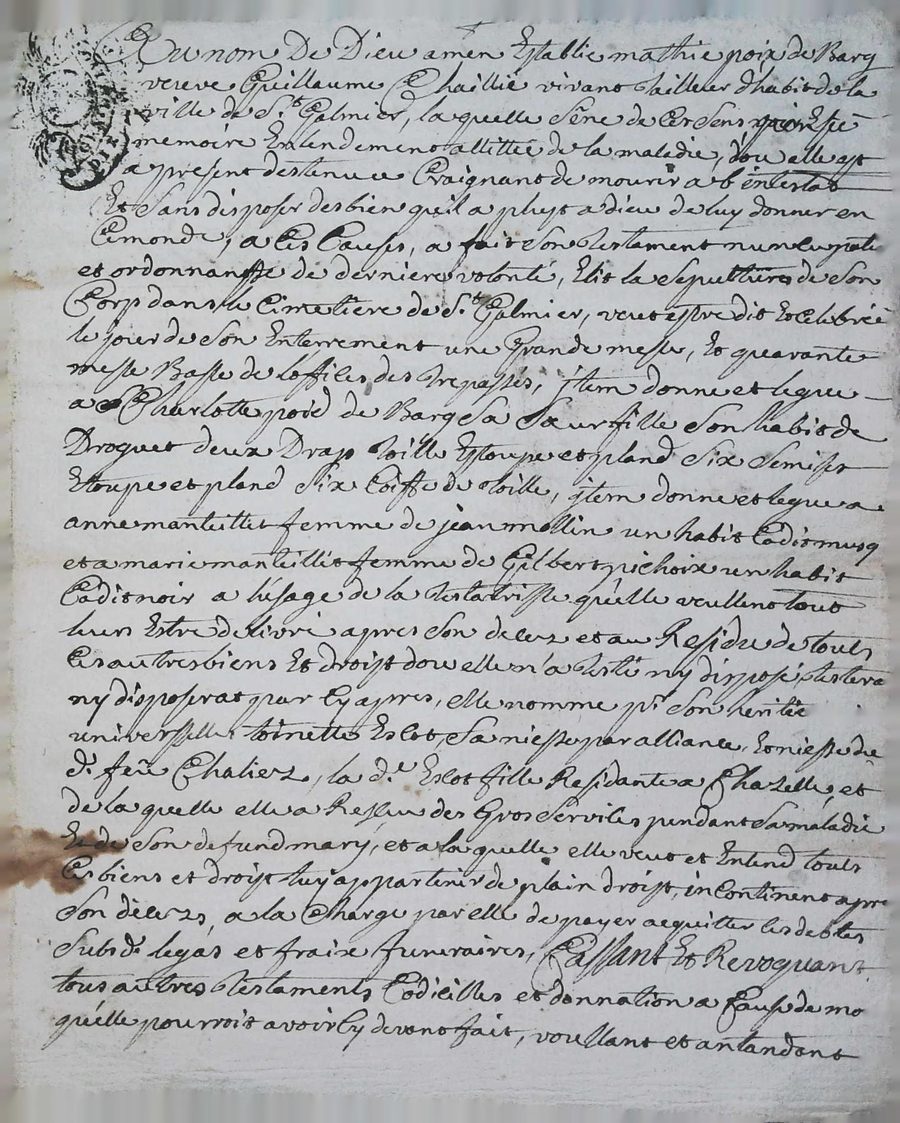 Au nom De Dieu amen Establie mathie poix de Barg
veuve Guillaume Chaillié vivant Tailleur dhabit de la
ville de St. Galmier, la quelle sène de ces sens
memoire Entendement allittée de la maladie, dou elle est
a present destenue Craignant de mourir ab intestat
Et sans disposer des bien qu'il a pluyt a dieu de luy donner en
Cemonde, a Ces Causes, a fait son testament nuncupatif
et ordonnance de derniere volonté, Elit la Sepulture de son
Corp dans le Cimetiere de St. Galmier, veut estre dit Et Celebrée
le jour de son Enterrement une Grande messe, Et quarante
messe Basse de loffices des trepassés, jtem donne et legue
a Charlotte poid de Barg Sa Sœur fille Son habit de
Droguet deux Drap toille Estoupe et pland Six Semises
Etoupe et pland Six Coiffe de toille, jtem donne et legue a
anne manteillet femme de jean mollin un habit Cadis musq
et a marie manteillet femme de Gilbert pichoix un habit
Cadis noir a lusage de la testatrisse qu'elle veullent tout
leurs Estre delivré apres son deces et au Residu de touts
Ces autres biens Et droist dou elle n'a testé ny disposé, testera
ny disposerat par Cy apres, elle nomme pr. Son heritiè
universelle, toinette Escot, Sa niesse par alliance, Et niesse du
dt. feu Chaliez, la de. Escot fille Residante a Chazelle, et
de la quelle elle a Resseu des Gros Services pendant Sa maladie
Et de Son defund mary, et a laquelle elle veut et Entend touts
Ces biens et droist luy appartenir de plain droist, incontinent apre
Son déces, a la Charge par elle de payer acquitter les debtes
Subsdt. legas et fraix funeraires, Cassant Et Revoquant
tous autres testaments Codicilles et donnation a Cause de mo
qu'elle pourroit avoir Cy devant fait, voullant et antandant